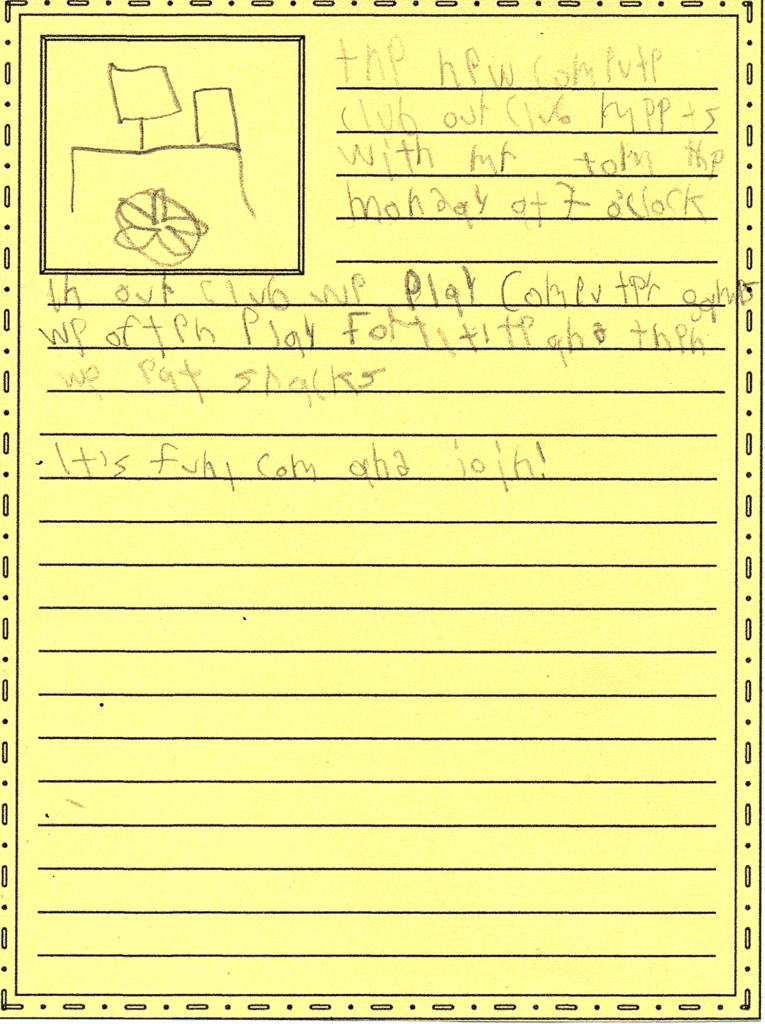 the new compute
club our club meets
with mr tom the
monday at 7 o'clock
In our club we play computer games
we often play Fortnite and then
we eat snacks
It's fun, com and join!